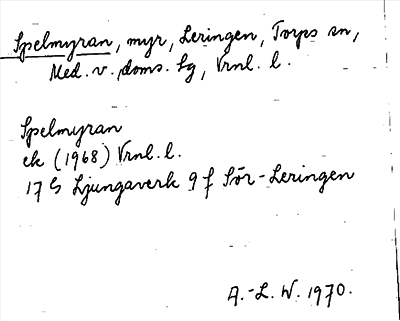 Spelmyran, myr, Leringen, Torps sn,
Med. v. doms. sg, Vrnl. l.
Spelmyran
ek (1968) Vrnl. l.
17 G Ljungaverk 9 f Sör-Leringen
A.-L. W. 1970.